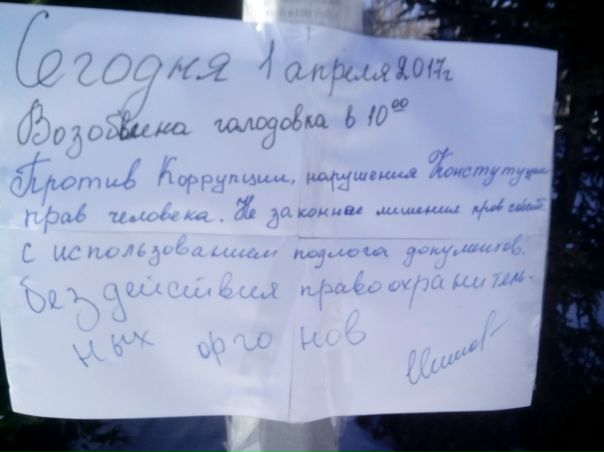 Сегодня 1 апреля 2017г
голодовка в 10⁰⁰
Против Коррупции, нарушения Конституции
прав человека. Не законное лишения прав
с использованием подлога документов.
бездействия правоохранитель-
ных органов